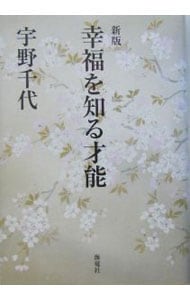 新版
幸福を知る才能
宇野千代
海竜社